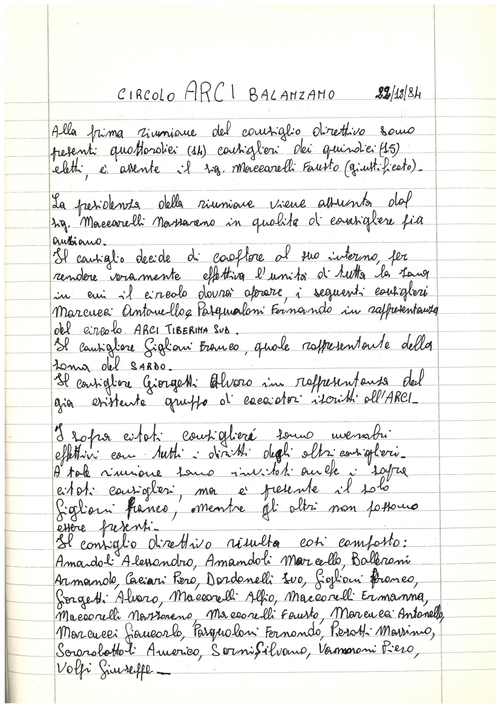 CIRCOLO ARCI BALANZANO 22/12/84
Alla prima riunione del consiglio direttivo sono
presenti quattordici (14) consiglieri dei quindici (15)
eletti, è assente il sig. Maccarelli Fausto (giustificato).
La presidenza della riunione viene assunta dal
sig. Maccarelli Nazzareno in qualità di consigliere più
anziano.
Il consiglio decide di cooptare al suo interno, per
rendere veramente effettiva l'unità di tutta la zona
in cui il circolo dovrà operare, i seguenti consiglieri
Marcucci Antonello e Pasqualoni Fernando in rappresentanza
del circolo ARCI TIBERINA SUD.
Il consigliere Giglioni Franco, quale rappresentante della
zona del SARDO.
Il consigliere Giorgetti Alvaro in rappresentanza del
già esistente gruppo di cacciatori iscritti all'ARCI.
I sopra citati consiglieri sono membri
effettivi con tutti i diritti degli altri consiglieri.
A tale riunione sono invitati anche i sopra
citati consiglieri, ma è presente il solo
Giglioni Franco, mentre gli altri non possono
essere presenti.
Il consiglio direttivo risulta così composto:
Amadoli Alessandro, Amandoli Marcello, Balleroni
Armando, Caciari Piero, Dardanelli Ivo, Giglioni Franco,
Giorgetti Alvaro, Maccarelli Alfio, Maccarelli Ermanna,
Maccarelli Nazzareno, Maccarelli Fausto, Marcucci Antonello,
Marcucci Giancarlo, Pasqualoni Fernando, Perotti Massimo,
Scarabattoli Americo, Sorni Silvano, Vannoni Piero,
Volpi Giuseppe